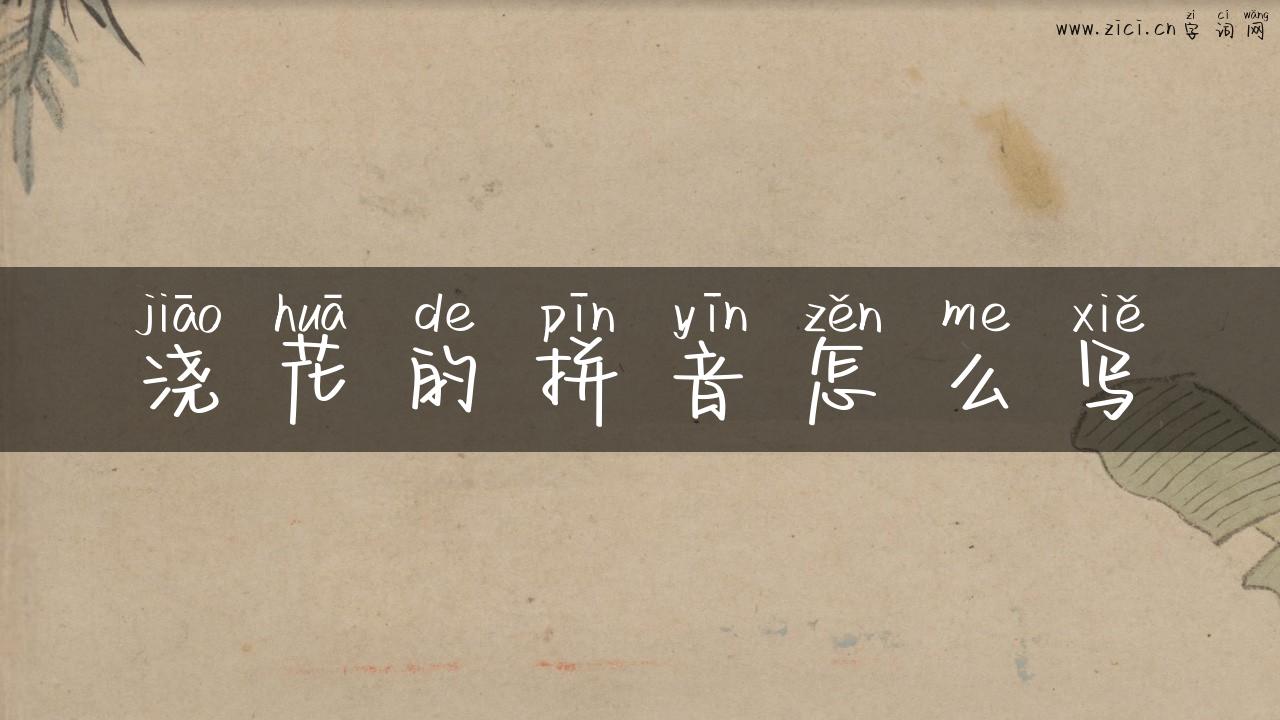 zì cí wǎng
www.zici.cn 字 词 网
jiāo huā de pīn yīn zěn me xiě
浇 花 的 拼 音 怎 么 写